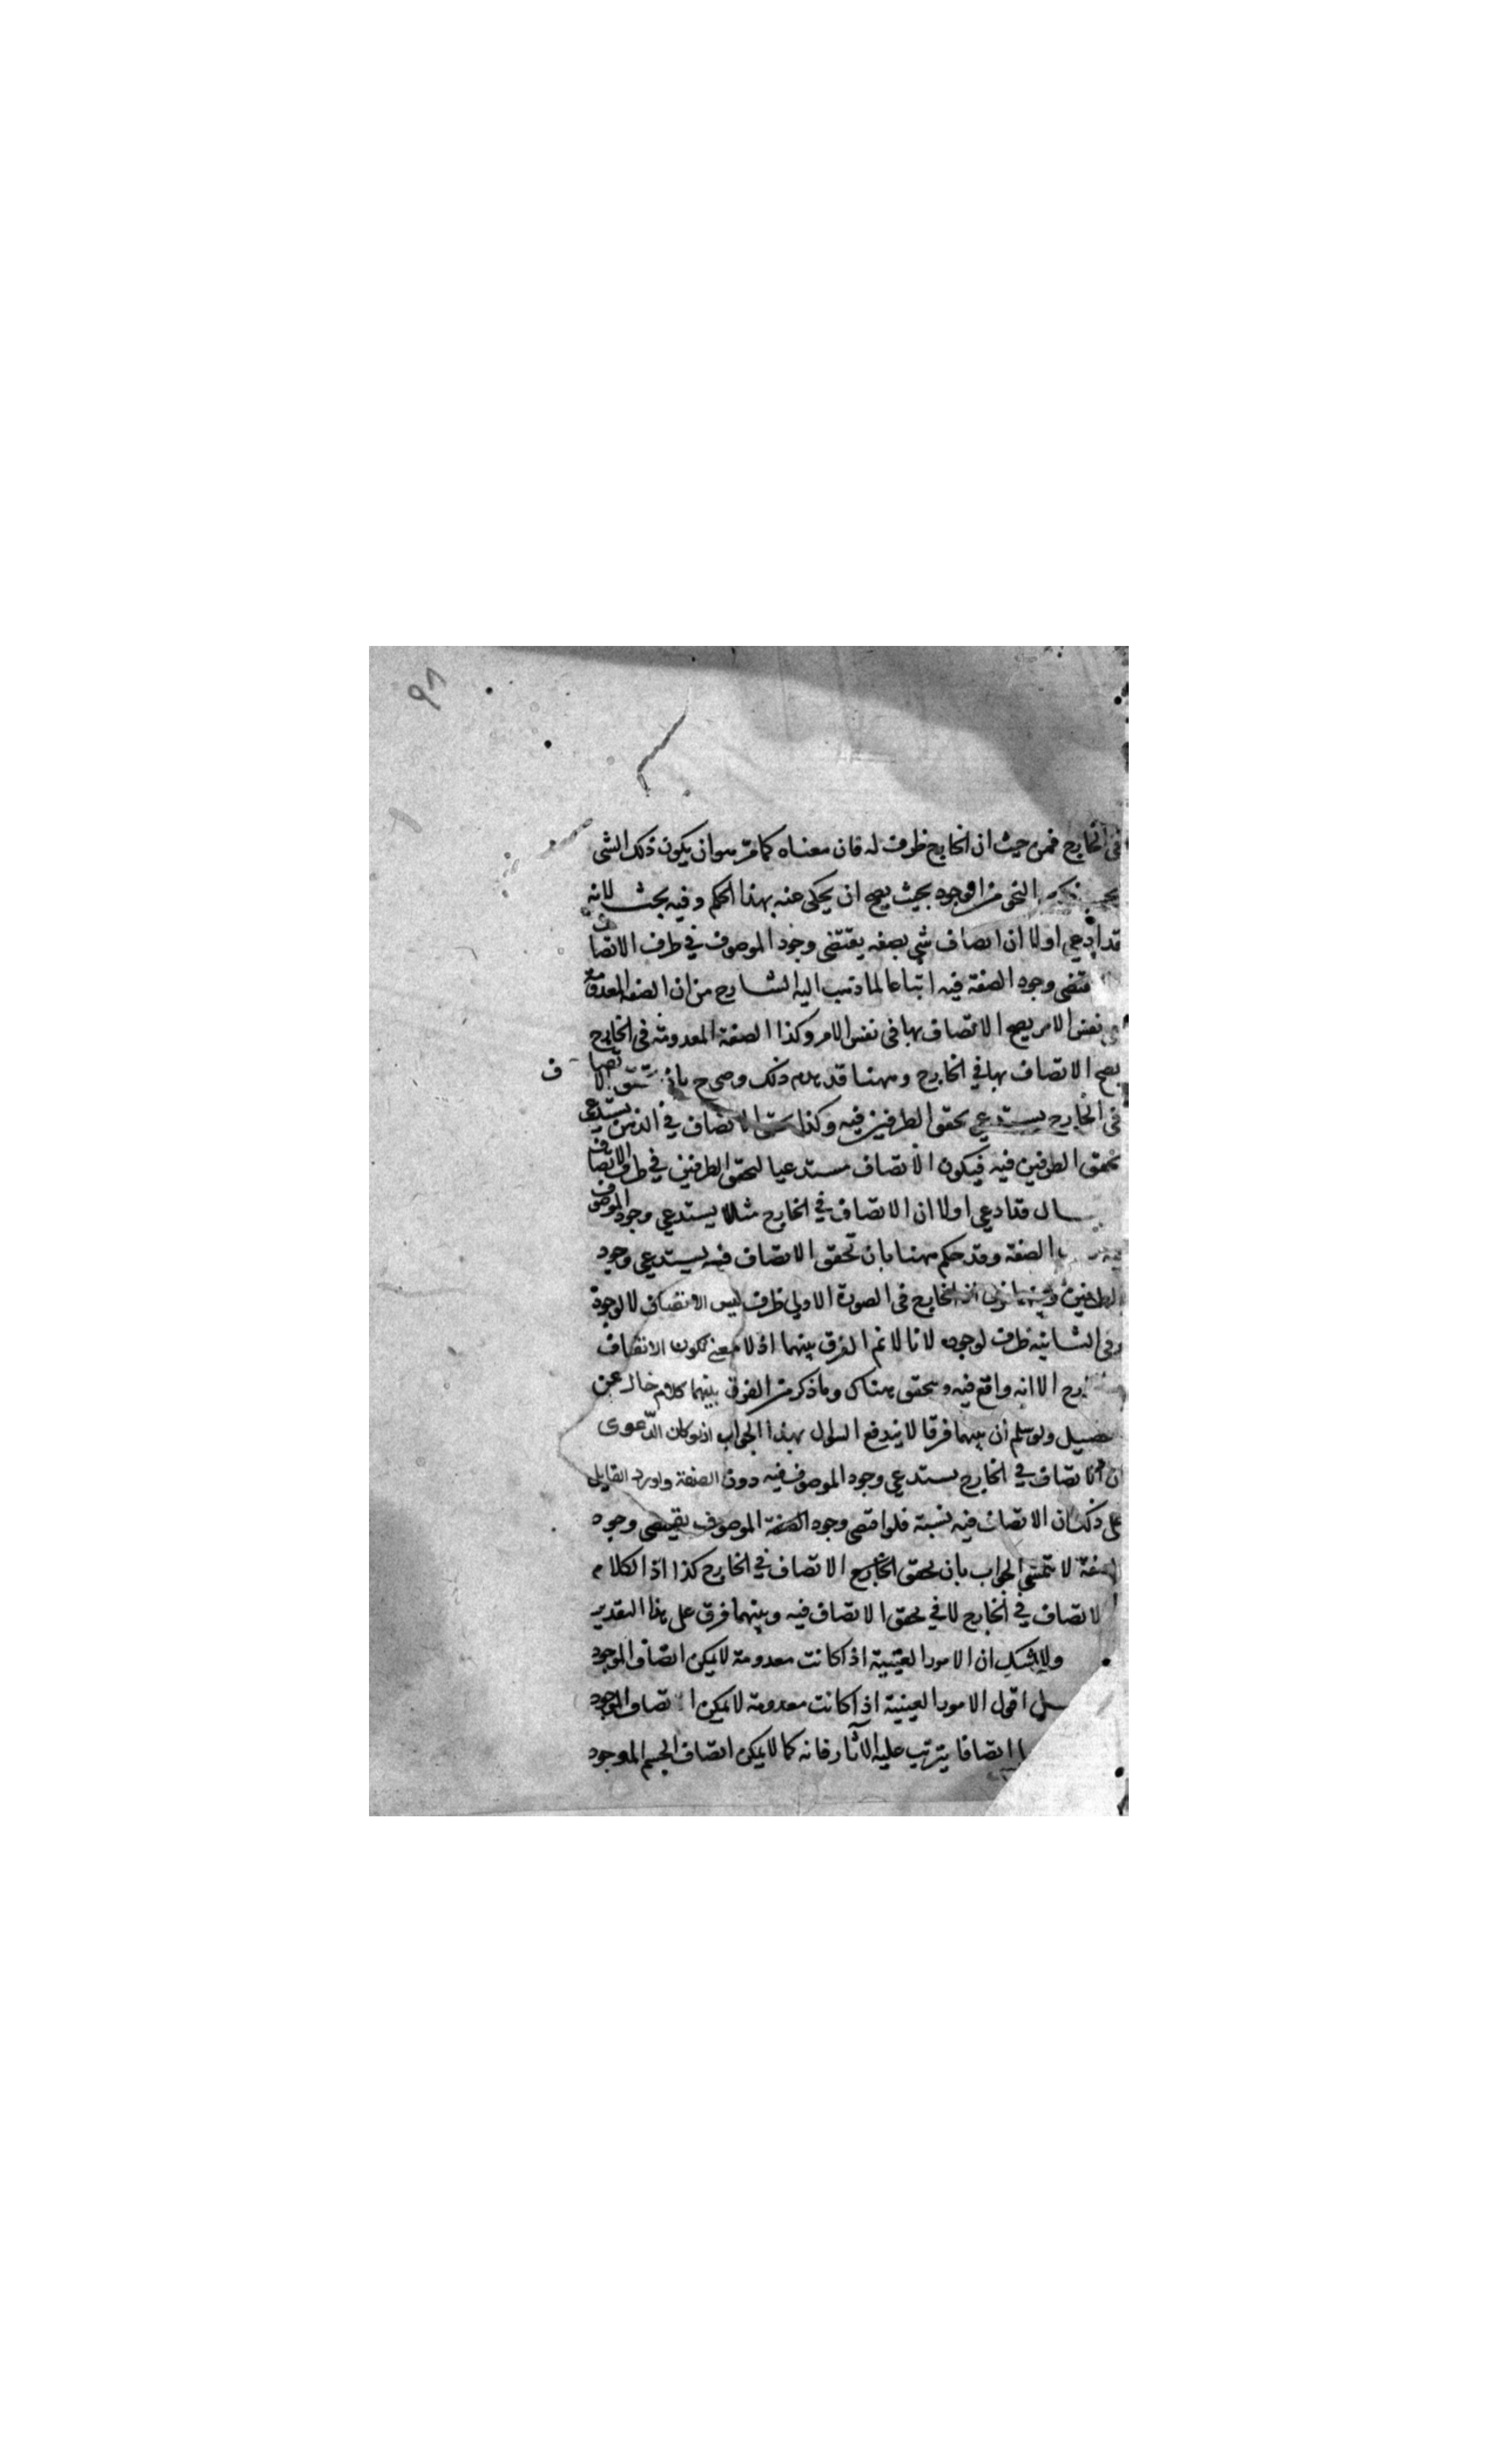 ٩٨
فى الخارج فمن حيث ان الخارج ظرف له فان معناه كما مر هو ان يكون ذلك الشى
النحو من الوجود بحيث يصح ان يحكى عنه بهذا الحكم وفيه بحث لانه
قد ادعى اولا ان اتصاف شى بصفه يقتضى وجود الموصوف فى ظرف الاتصاف
وجود الصفة فيه اتباعا لما ذهب اليه الشارح من ان الصفة المعدومة
نفس الامر يصح الاتصاف بها فى نفس الامر وكذا الصفة المعدومة فى الخارج
يصح الاتصاف بها فى الخارج وههنا قد هدم ذلك وصرح بان تحقق الاتصاف
فى الخارج يستدعى تحقق الطرفين فيه وكذا الاتصاف فى الذهن يستدعى
تحقق الطرفين فيه فيكون الاتصاف مستدعيا لتحقق الطرفين فى ظرف الاتصاف
قد ادعى اولا ان الاتصاف فى الخارج مثلا يستدعى وجود الموصوف
الصفة وقد حكم ههنا بان تحقق الاتصاف فيه يستدعى وجود
الطرفين الخارج فى الصورة الاولى ظرف ليس الاتصاف لا لوجوده
وفى الثانية ظرف لوجوده لانا لا نم الفرق بينهما اذ لا معنى لكون الاتصاف
الا انه واقع فيه ومتحقق هناك وما ذكر من الفرق بينهما كلام خال عن
ولو سلم ان بينهما فرقا لا يندفع السوال بهذا الجواب اذ لو كان الدعوى
ان الاتصاف فى الخارج يستدعى وجود الموصوف فيه دون الصفة واورد القايل
على ذلك ان الاتصاف فيه نسبة فلو اقتضى وجود الصفة الموصوف يقتضى وجود
الصفة لا يتمشى الجواب بان تحقق الخارج الاتصاف فى الخارج كذا اذ الكلام
الاتصاف فى الخارج لا فى تحقق الاتصاف فيه وبينهما فرق على هذا التقدير
ولا شك ان الامور العينية اذا كانت معدومة لا يمكن اتصاف الموجود
اقول الامور العينية اذا كانت معدومة لا يمكن اتصاف الموجود
اتصافا يترتب عليه الآثار فانه كما لا يمكن اتصاف الجسم الموجود